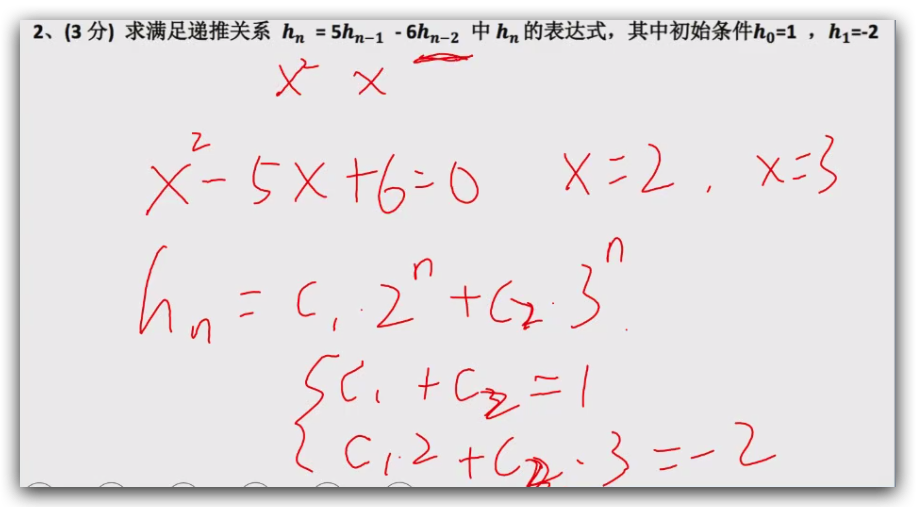 2、(3 分) 求满足递推关系 hₙ = 5hₙ₋₁ - 6hₙ₋₂ 中 hₙ 的表达式，其中初始条件h₀=1 ，h₁=-2
x² x
x² - 5x + 6 = 0 x = 2 . x = 3
hₙ = c₁·2ⁿ + c₂·3ⁿ.
{ c₁ + c₂ = 1
c₁·2 + c₂·3 = -2